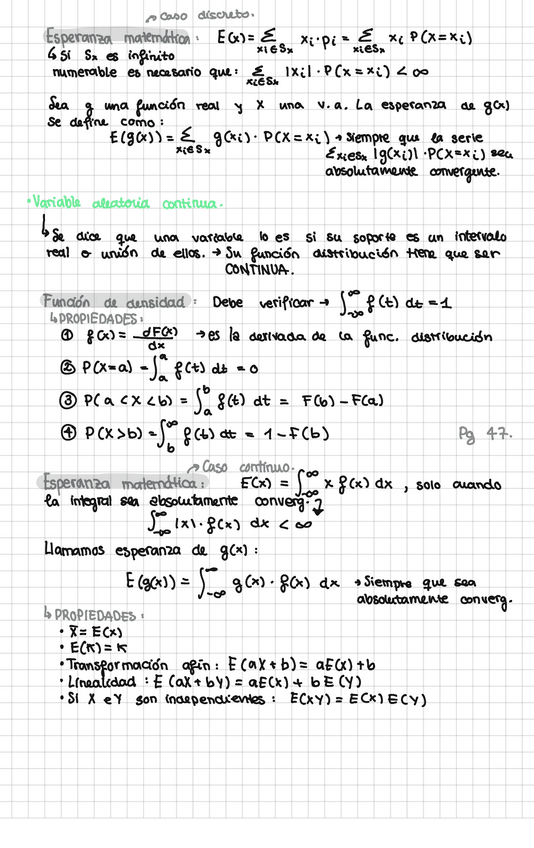 ↗ Caso discreto.
Esperanza matemática: E(x) = Σ_{xi∈Sx} xi·pi = Σ_{xi∈Sx} xi P(X=xi)
↳ Si Sx es infinito
numerable es necesario que: Σ_{xi∈Sx} |xi|·P(X=xi) < ∞
Sea g una función real y X una v.a. La esperanza de g(x)
se define como:
E(g(x)) = Σ_{xi∈Sx} g(xi)·P(X=xi) → siempre que la serie
Σ_{xi∈Sx} |g(xi)|·P(X=xi) sea
absolutamente convergente.
·Variable aleatoria continua.
↳ Se dice que una variable lo es si su soporte es un intervalo
real o unión de ellos. → Su función distribución tiene que ser
CONTINUA.
Función de densidad: Debe verificar → ∫_{-∞}^{∞} f(t) dt = 1
↳ PROPIEDADES:
① f(x) = dF(x)/dx → es la derivada de la func. distribución
② P(X=a) = ∫_a^a f(t) dt = 0
③ P(a<X<b) = ∫_a^b f(t) dt = F(b) - F(a)
④ P(X>b) = ∫_b^∞ f(t) dt = 1 - F(b) Pg 47.
↗ Caso continuo.
Esperanza matemática: E(x) = ∫_{-∞}^{∞} x f(x) dx, solo cuando
la integral sea absolutamente converg. ↴
∫_{-∞}^{∞} |x|·f(x) dx < ∞
Llamamos esperanza de g(x):
E(g(x)) = ∫_{-∞}^{∞} g(x)·f(x) dx → Siempre que sea
absolutamente converg.
↳ PROPIEDADES:
· x̄ = E(x)
· E(K) = K
· Transformación afín: E(aX+b) = aE(x)+b
· Linealidad: E(aX+bY) = aE(x) + bE(Y)
· Si X e Y son independientes: E(XY) = E(X)E(Y)